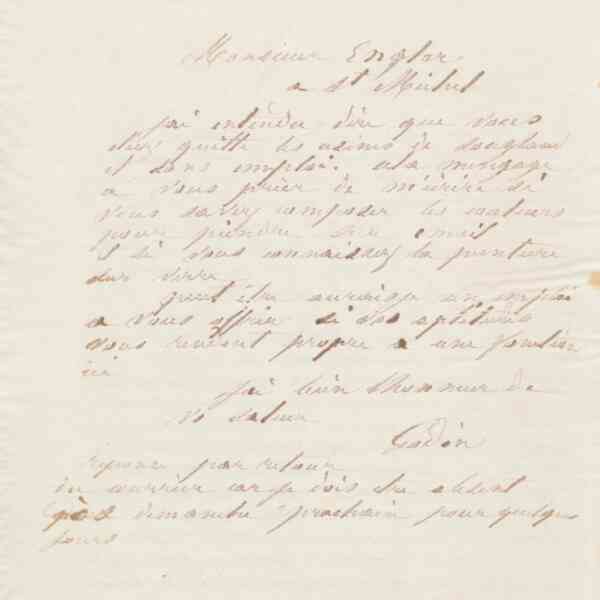 Monsieur Engler
a St Michel
jai entendu dire que vous
quitté les usines de
et sans emploi.
a vous prier de mécrire si
vous savez composer les couleurs
pour peindre sur émail
et si vous connaissez la peinture
sur verre
peut être auraisje un emploi
a vous offrir si vos aptitudes
vous rendent propre a une fonction
ici
jai bien lhonneur de
vs saluer
Godin
réponse par retour
du courrier car je dois etre absent
dimanche prochain pour quelques
jours